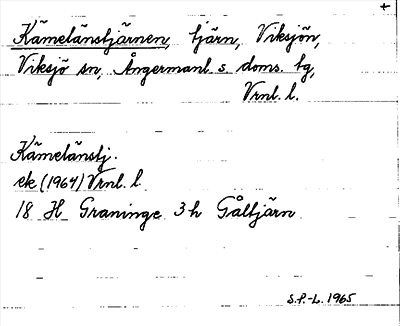 +
Kämelänstjärnen, tjärn, Viksjön,
Viksjö sn, Ångermanl. s. doms. tg,
Vrnl. l.
Kämelänstj.
ek (1964) Vrnl. l
18 H Graninge 3 h Gåltjärn
S.P.-L. 1965